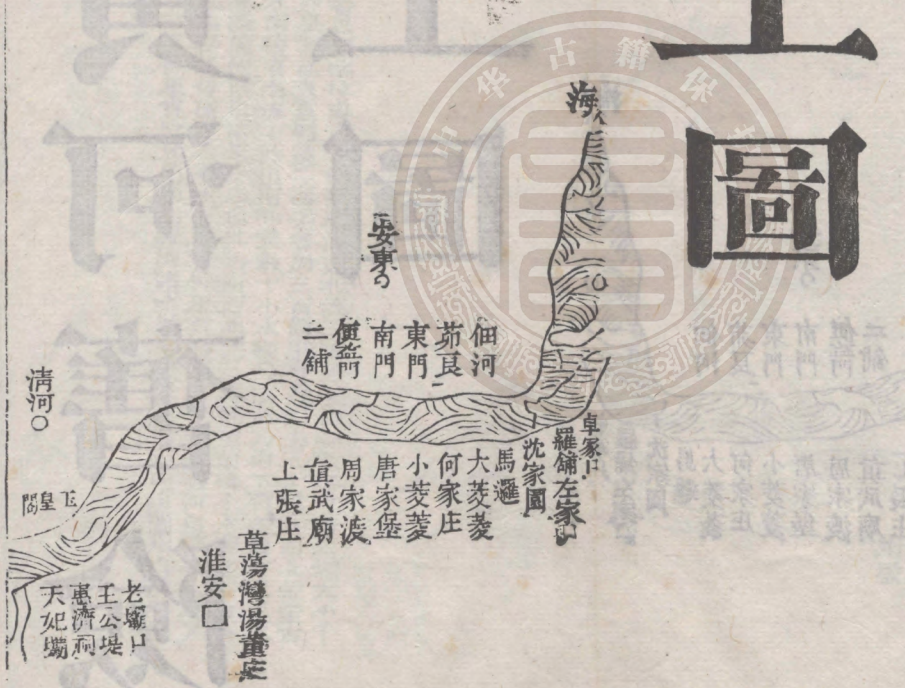 圖
海
安東
佃河
茆良
東門
南門
便益門
二鋪
清河
卓家口
羅鋪左家
沈家園
馬邏
大菱菱
何家庄
小菱菱
唐家堡
周家渡
真武廟
上張庄
草蕩灣湯董庄
淮安
玉皇閣
老壩口
王公堤
惠濟祠
天妃壩
中华古籍保